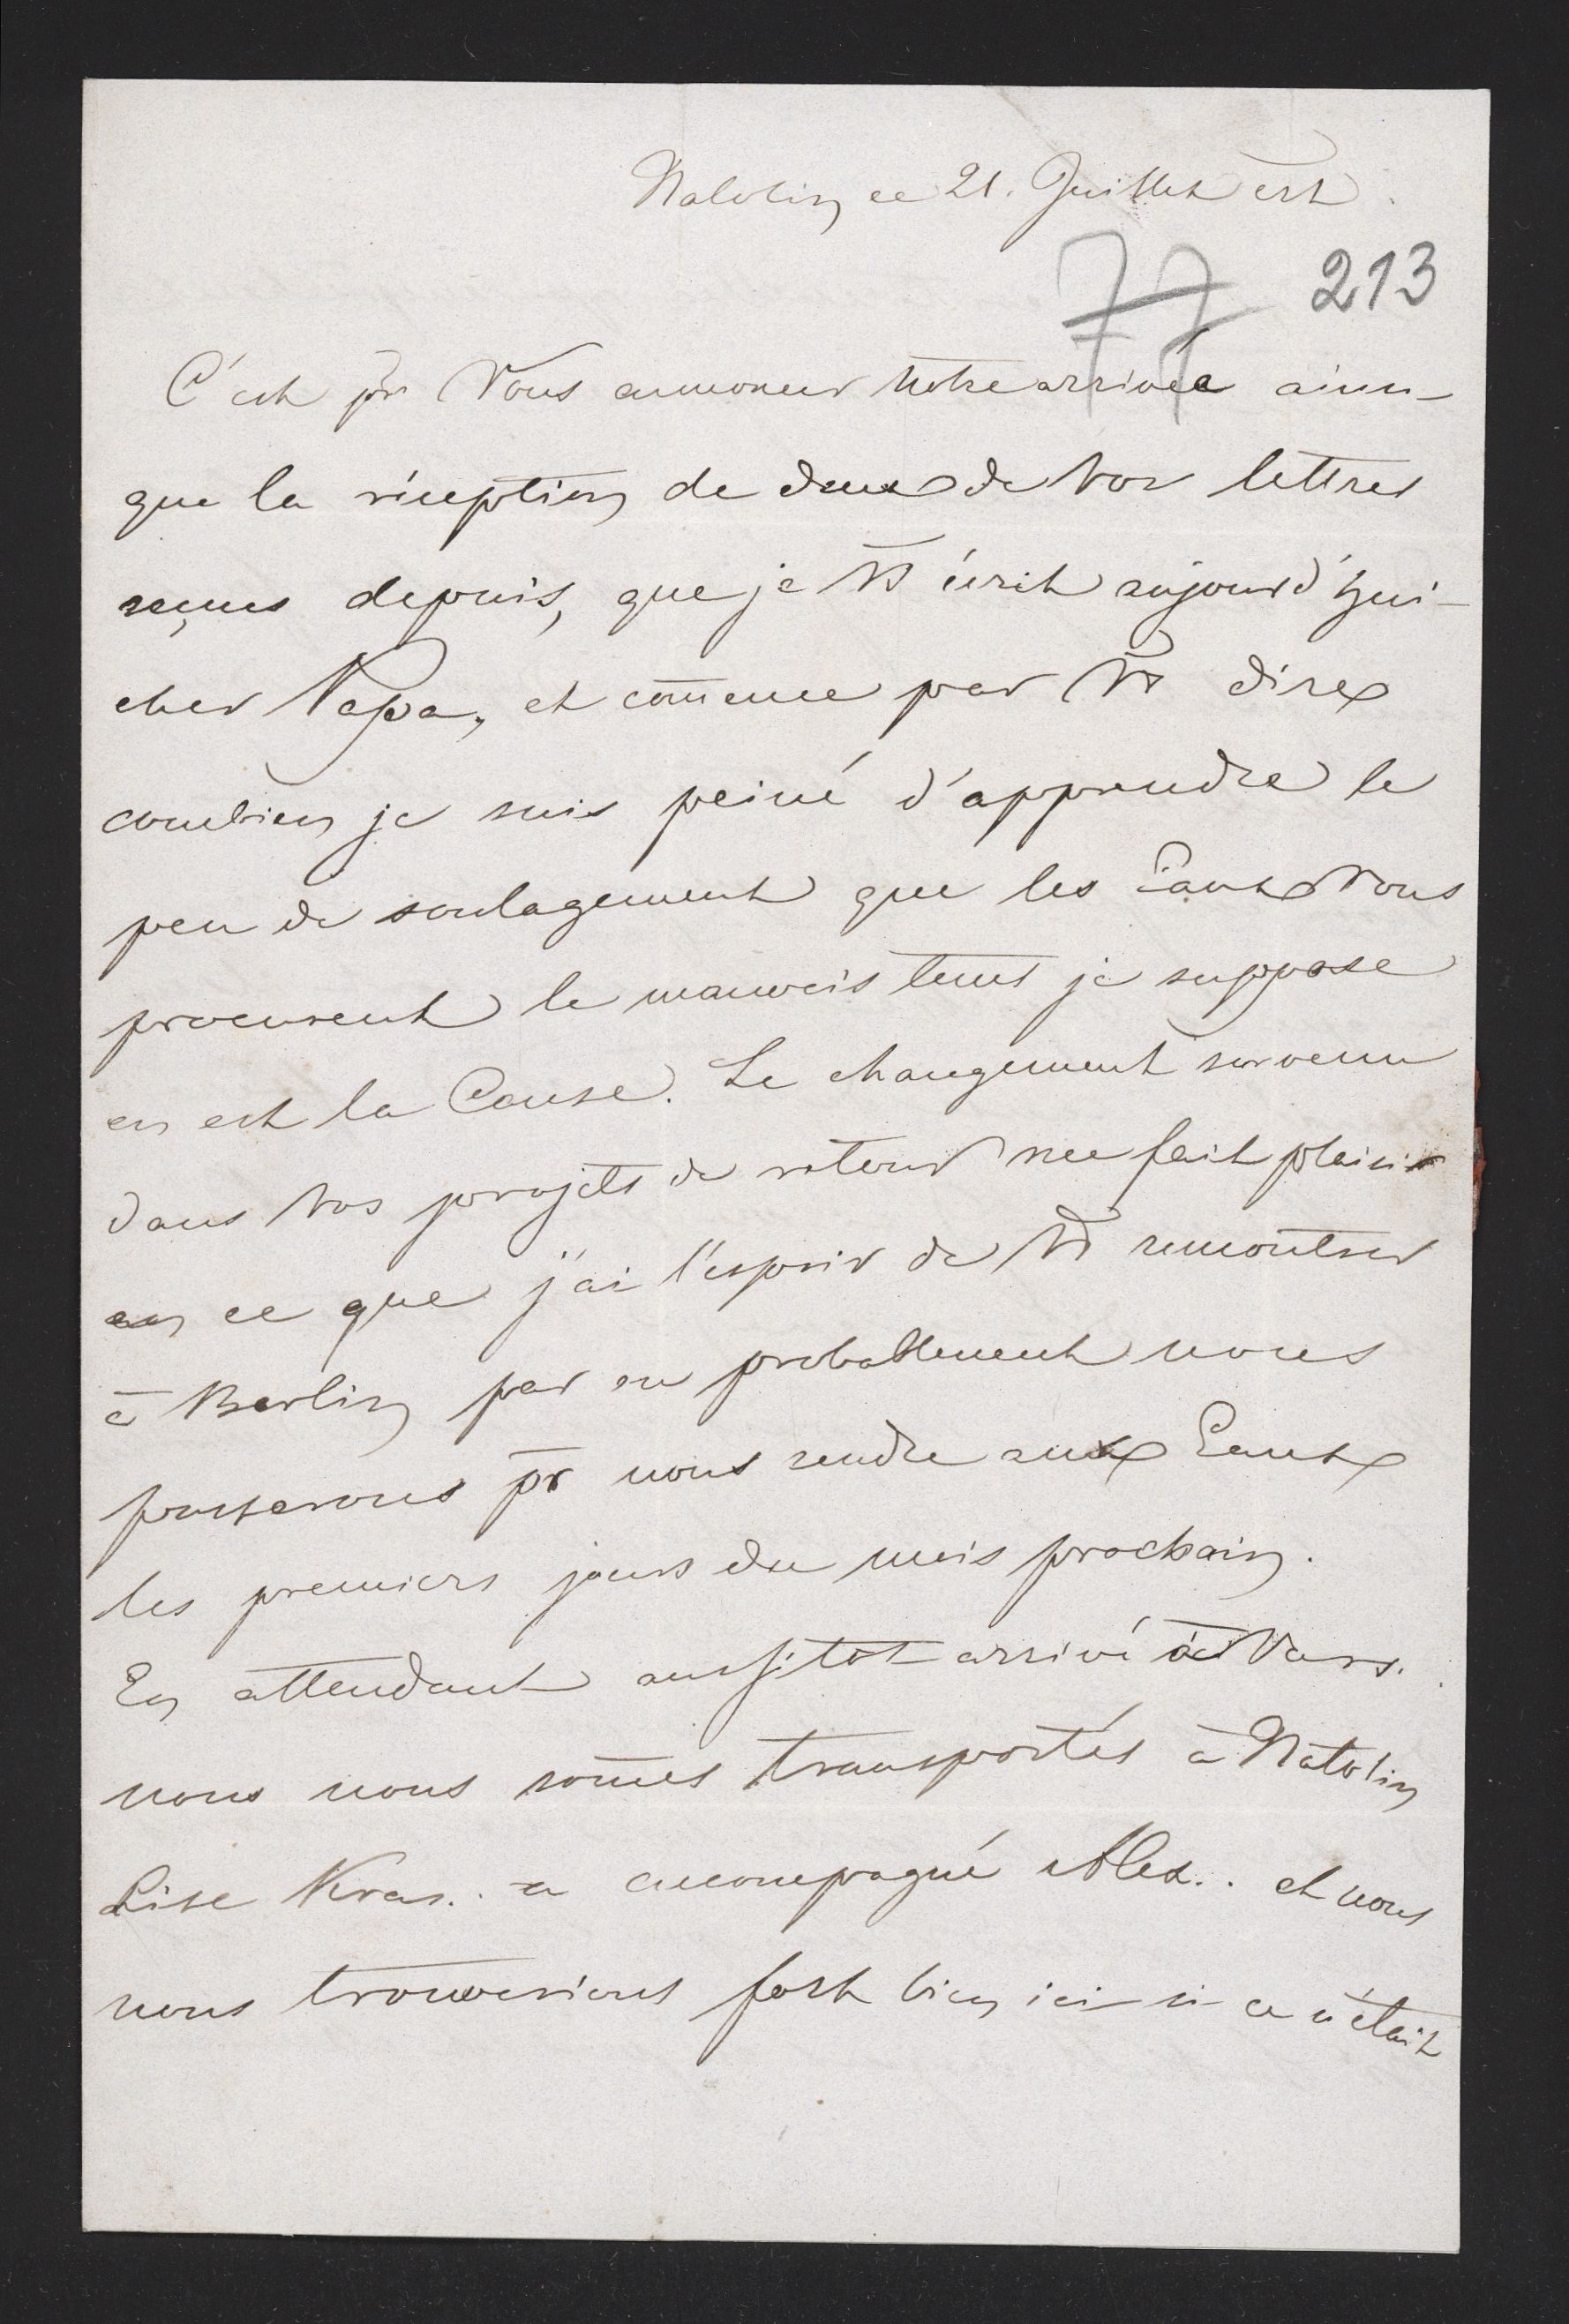 Natolin ce 21. Juillet
77 213
C'est pr Vous annoncer notre arrivée ainsi
que la réception de deux de Vos lettres
reçues depuis, que je Vs écrit aujourd'hui
cher Papa, et comence par Vs dire
combien je suis peiné d'apprendre le
peu de soulagement que les Eaux Vous
procurent le mauvais tems je suppose
en est la Cause. Le changement survenu
dans Vos projets de retour me fait plaisir
en ce que j'ai l'espoir de Vs rencontrer
à Berlin par ou probablement nous
passerons pr nous rendre aux Eaux
les premiers jours du mois prochain.
En attendant aussitot arrivé à Vars.
nous nous somes transportés à Natolin
Lise Kras. a accompagné Alex.. et nous
nous trouverions fort bien ici si ce n'était